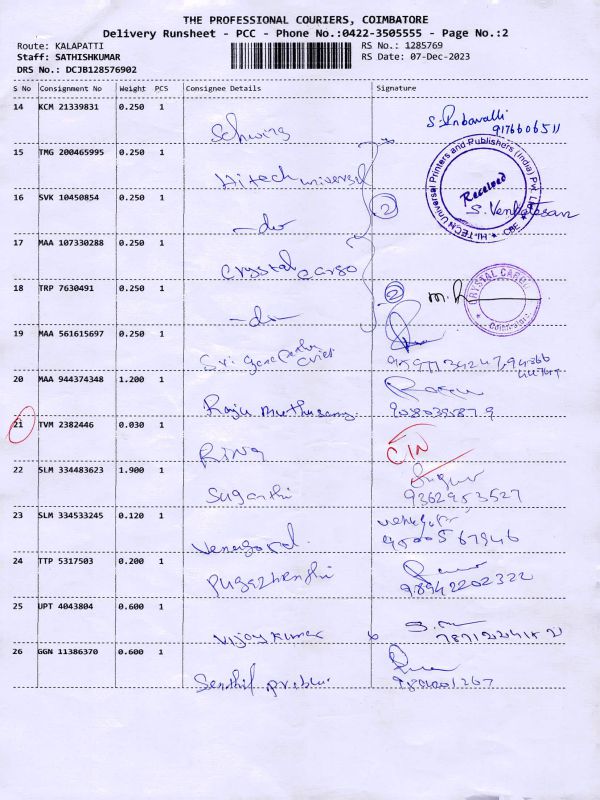 THE PROFESSIONAL COURIERS, COIMBATORE
Delivery Runsheet - PCC - Phone No.:0422-3505555 - Page No.:2
Route: KALAPATTI
Staff: SATHISHKUMAR
DRS No.: DCJB128576902
RS No.: 1285769
RS Date: 07-Dec-2023
S No Consignment No Weight PCS Consignee Details Signature
14 KCM 21339831 0.250 1
Schwing
S. Inbavalli
9176606511
15 TMG 200465995 0.250 1
Hitech universal
HI-TECH Universal Printers and Publishers (India) Pvt Ltd
CBE
Received
S. Venkatesan
16 SVK 10450854 0.250 1
-do-
2
17 MAA 107330288 0.250 1
Crystal cargo
18 TRP 7630491 0.250 1
-do-
2
CRYSTAL CARGO
Coimbatore
19 MAA 561615697 0.250 1
Sri
20 MAA 944374348 1.200 1
Raju muthusamy
21 TVM 2382446 0.030 1
RING
CIN
22 SLM 334483623 1.900 1
Suganthi
9362953527
23 SLM 334533245 0.120 1
Venugopal
24 TTP 5317503 0.200 1
Pugazhenthi
9894220232 2
25 UPT 4043804 0.600 1
Vijay Kumar
26 GGN 11386370 0.600 1
Senthil prabhu